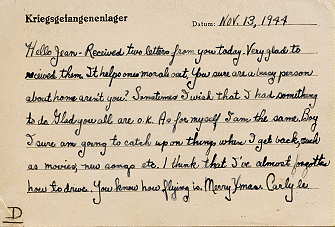 Kriegsgefangenenlager
Datum: Nov. 13, 1944
Hello Jean - Received two letters from you today. Very glad to
received them. It helps ones morals out. You sure are a busy person
about home aren't you? Sometimes I wish that I had something
to do. Glad you all are o.k. As for myself I am the same. Boy
I sure am going to catch up on things when I get back, such
as movies, new songs etc. I think that I've almost forgotten
how to drive. You know how flying is. Merry Xmas.
D